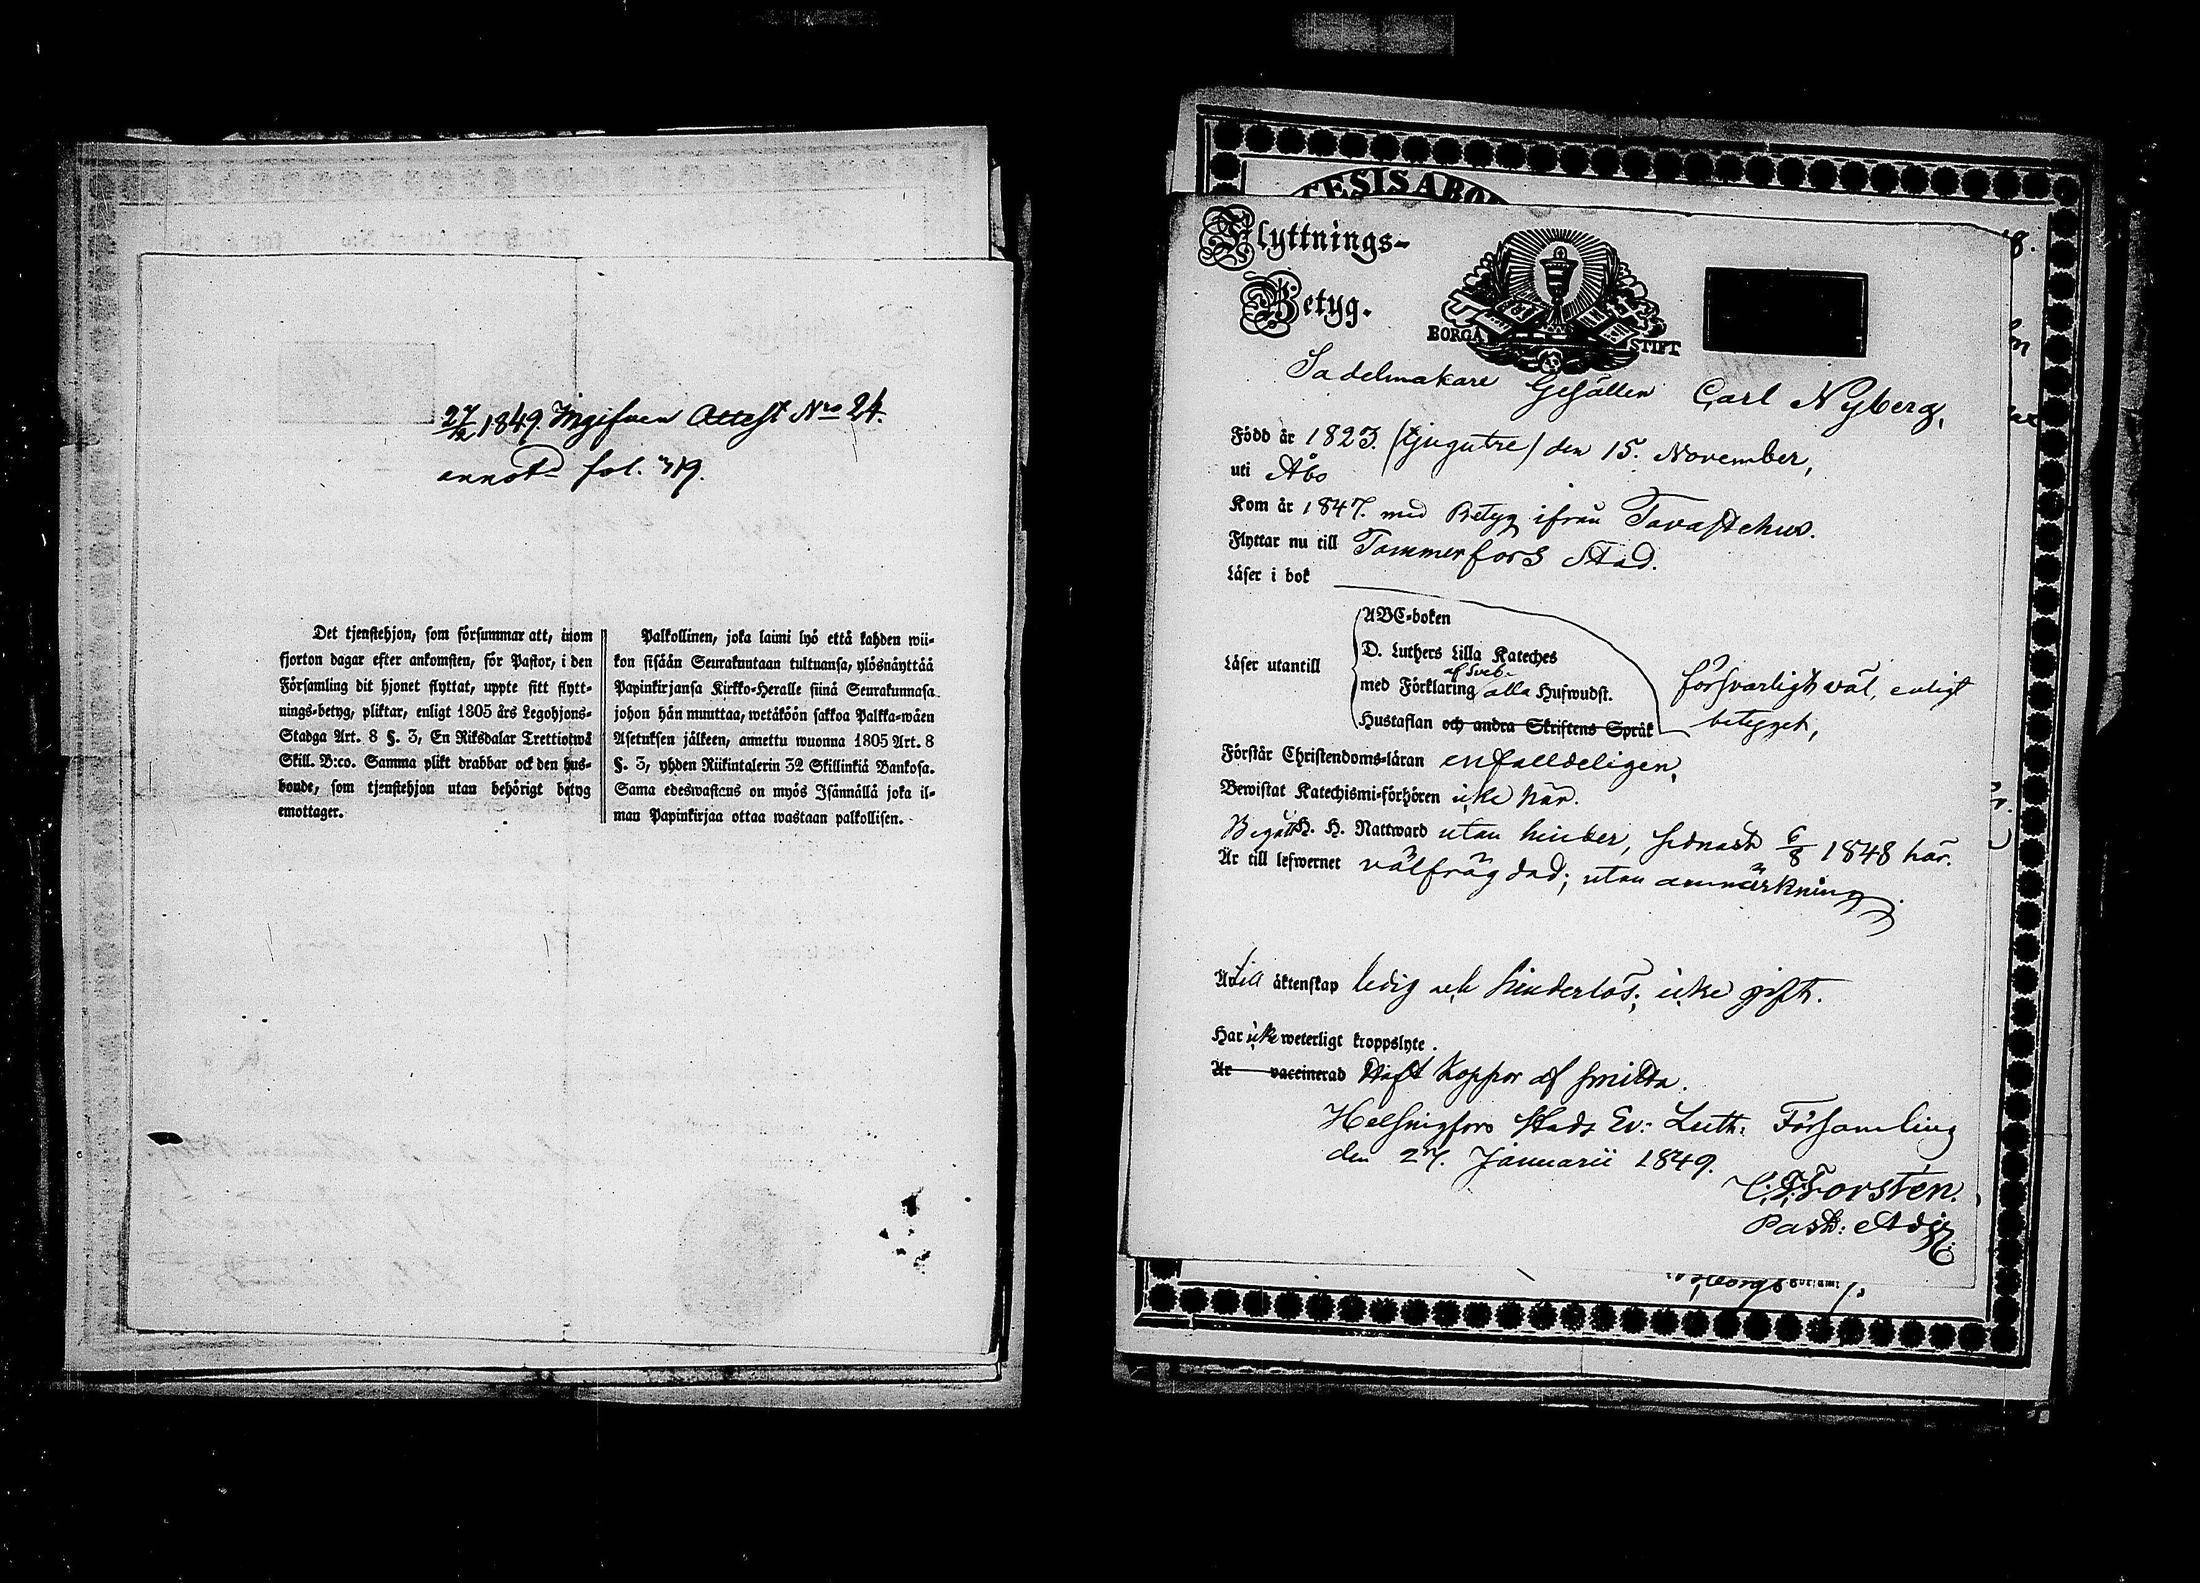 27/12 1849. Ingifven Attest Nro 24.
annot. fol. 319.
Det tjenstehjon, som försummar att, inom
fjorton dagar efter ankomsten, för Pastor, i den
Församling dit hjonet flyttat, uppte sitt flytt-
nings-betyg, pliktar, enligt 1805 års Legohjons-
Stadga Art. 8 §. 3, En Riksdalar Trettiotwå
Skill. B:co. Samma plikt drabbar ock den hus-
bonde, som tjenstehjon utan behörigt betyg
emottager.
Palkollinen, joka laimi lyö että kahden wii-
kon sisään Seurakuntaan tultuansa, ylösnäyttää
Papinkirjansa Kirkko-Heralle siinä Seurakunnasa
johon hän muuttaa, wetäköön sakkoa Palkka-wäen
Asetuksen jälkeen, annettu wuonna 1805 Art. 8
§. 3, yhden Riikintalerin 32 Skillinkiä Bankosa.
Sama edeswastaus on myös Isännällä joka il-
man Papinkirjaa ottaa wastaan palkollisen.
Flyttnings-
Betyg.
BORGÅ STIFT
Sadelmakare Gesällen Carl Nyberg,
Född år 1823. (tjugutre) den 15. November,
uti Åbo
Kom år 1847. med Betyg ifrån Tavastehus.
Flyttar nu till Tammerfors Stad.
Läser i bok
Läser utantill
ABC-boken
D. Luthers Lilla Kateches
af Sveb.
med Förklaring alla Hufwudst.
Hustaflan och andra Skriftens Språk
försvarligt väl, enligt
betyget,
Förstår Christendoms-läran enfalldeligen,
Bewistat Katechismi-förhören icke här.
Begått H. H. Nattward utan hinder, sednast 6/8 1848 här.
Är till lefwernet välfrägdad; utan anmärkning.
Är till äktenskap ledig och hinderlös; icke gift.
Har icke weterligt kroppslyte.
Är vaccinerad Haft Koppor af smitta.
Helsingfors Stads Ev: Luth: Församling
den 27. Januarii 1849.
C. F. Forstén.
Past: Adj: